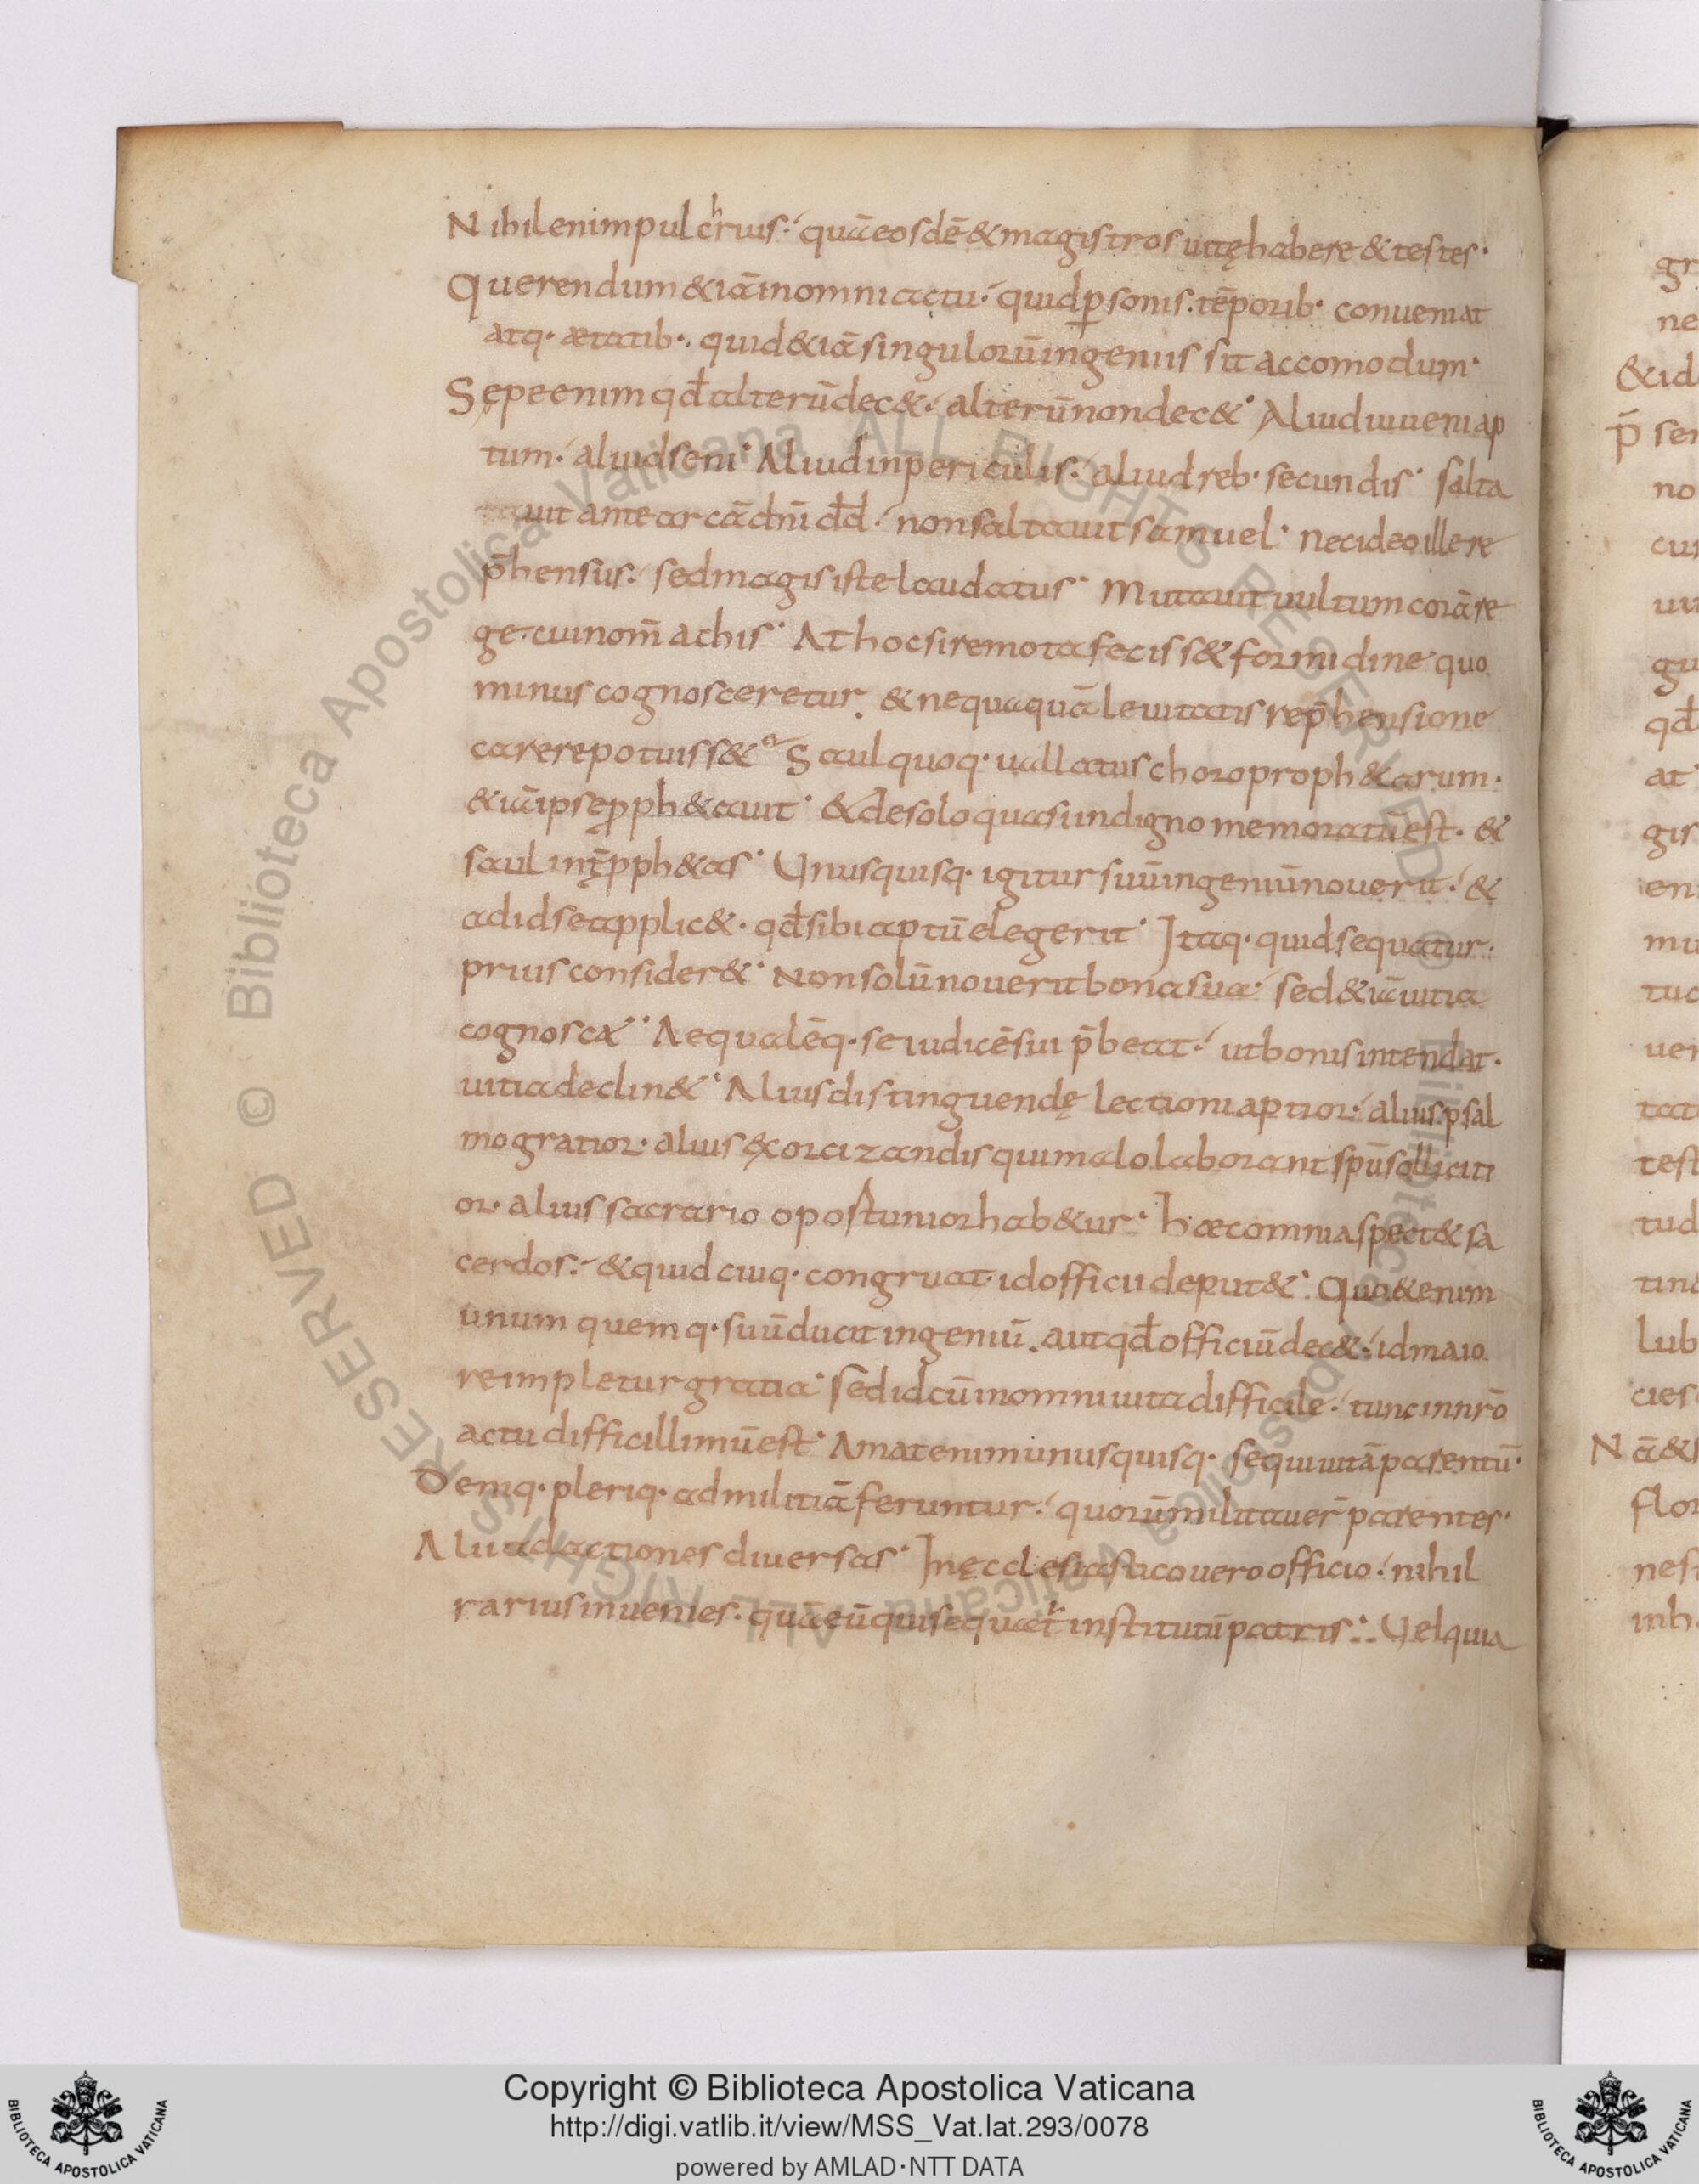 Nihil enim pulcʰrius· quā eosdē & magistros uitę habere & testes·
Querendum & iā in omni actu· quid p̲sonis· tēporib· conueniat
atq· ætatib·. quid & iā singulorū ingeniis sit accomodum·
Sepe enim qđ alterū dec&· alterū non dec&· Aliud iuueni ap
tum· aliud seni· Aliud in periculis· aliud reb· secundis· salta
uit ante arcā dn̄i dđ· non saltauit samuel· nec ideo ille re
p̄hensus· sed magis iste laudatus· Mutauit uultum corā re
ge· cui nom̄ achis· At hoc si remota feciss& formidine quo
minus cognosceretur. & nequaquā leuitatis rep̄hensione
carere potuiss&· Saul quoq· uallatus choro proph&arum·
& iā ipse pph&auit· & de solo quasi indigno memoratū est· &
saul int̄ pph&as· Unusquisq· igitur suū ingeniū nouerit· &
ad id se applic&· qđ sibi aptū elegerit· Itaq· quid sequatur·
prius consider&· Non solū nouerit bona sua· sed & iā uitia
cognosca&· Aequalēq· se iudicē sui p̄beat· ut bonis intendat·
uitia declin&· Alius distinguendę lectioni aptior· alius psal
mo gratior· alius exorcizandis qui malo laborant spū solliciti
or· alius sacrario oportunior hab&ur· Hæc omnia spect& sa
cerdos· & quid cuiq· congruat· id officii deput&· Quo &enim
unum quemq· suū ducit ingeniū. aut qđ officiū dec&· id maio
re impletur gratia· sed id cū in omni uita difficile· tunc in nr̄o
actu difficillimū est· Amat enim unusquisq· sequi uitā parentū·
Deniq· pleriq· ad militiā feruntur· quorū militauer̄ parentes·
Alii ad actiones diuersas· In ęcclesiastico uero officio· nihil
rarius inuenies· quā eū qui sequat̄ institutū patris·. Uel quia
gr
ne
&id
p̄ ser
no
gu
qđ
at
gis
en
mu
uer
tat
test
tud
lub
cies
Nā &
flor
nest
inh
© Biblioteca Apostolica Vaticana ALL RIGHTS RESERVED
Copyright © Biblioteca Apostolica Vaticana
http://digi.vatlib.it/view/MSS_Vat.lat.293/0078
powered by AMLAD·NTT DATA
BIBLIOTECA APOSTOLICA VATICANA
BIBLIOTECA APOSTOLICA VATICANA